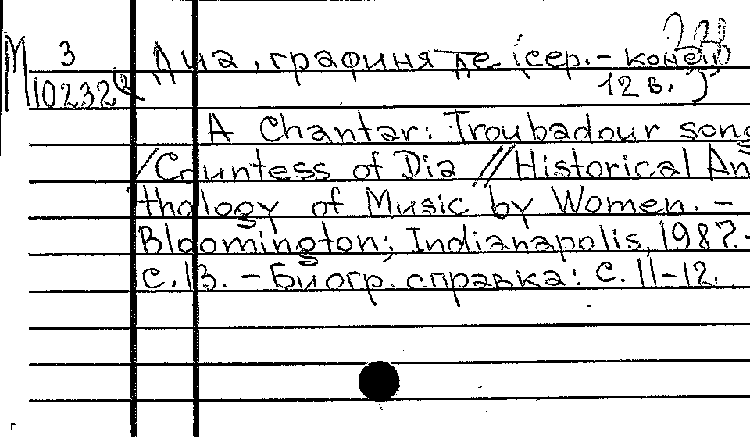 М 3
10232
Диа, графиня де (сер. - конец
12 в.)
A Chantar: Troubadour song
/Countess of Dia // Historical An
thology of Music by Women. -
Bloomington; Indianapolis, 1987. -
С. 13. - Биогр. справка: с. 11-12.